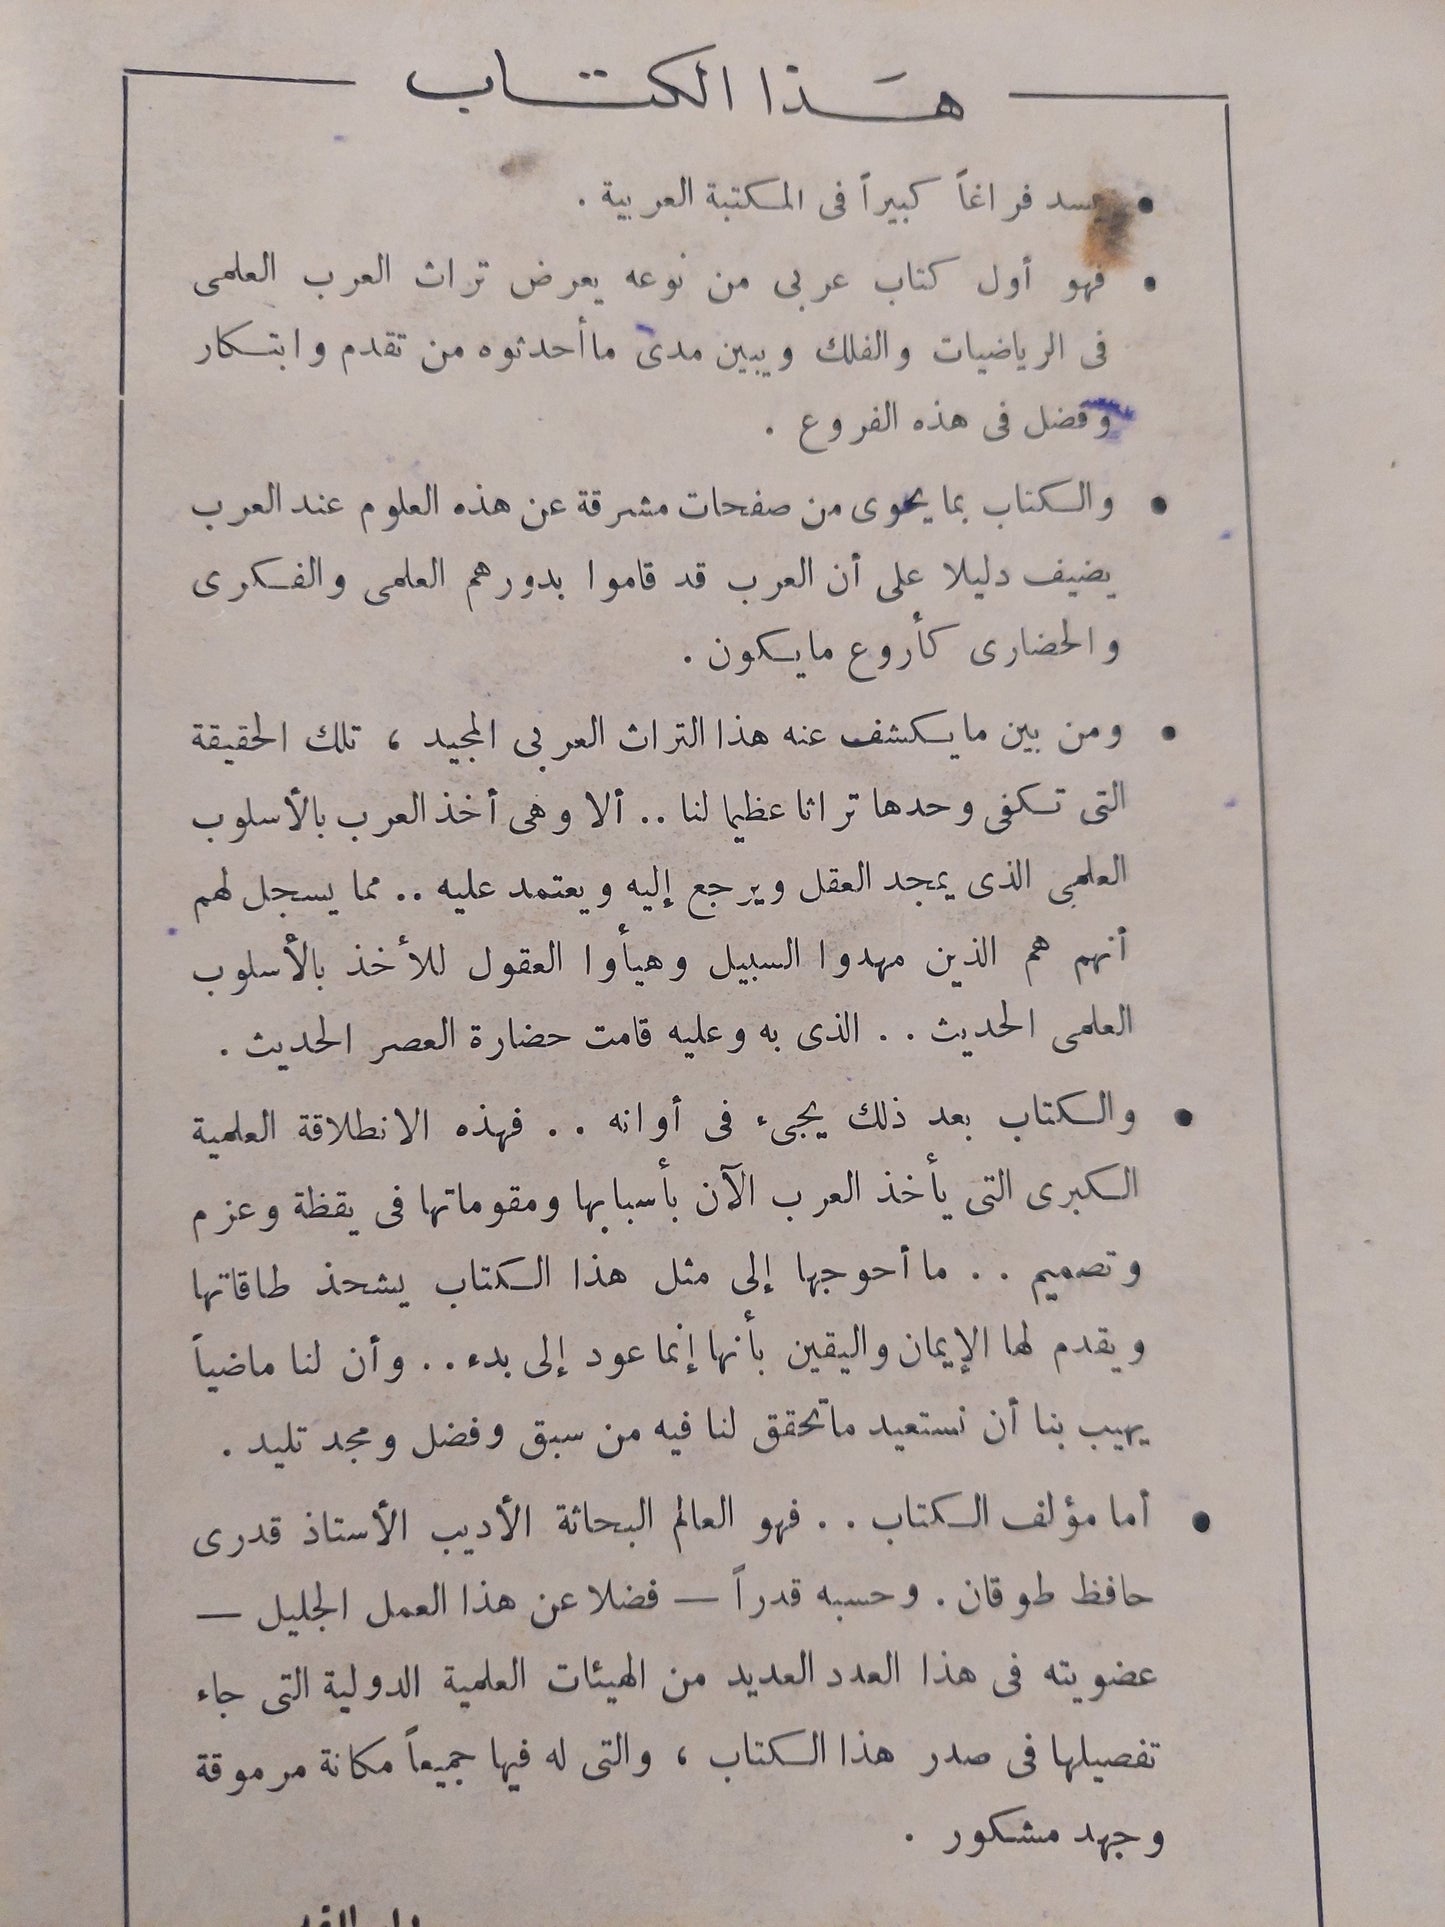 هذا الكتاب
• يسد فراغاً كبيراً فى المكتبة العربية .
• فهو أول كتاب عربى من نوعه يعرض تراث العرب العلمى
فى الرياضيات والفلك ويبين مدى ما أحدثوه من تقدم وابتكار
وفضل فى هذه الفروع .
• والكتاب بما يحوى من صفحات مشرقة عن هذه العلوم عند العرب
يضيف دليلا على أن العرب قد قاموا بدورهم العلمى والفكرى
والحضارى كأروع ما يكون .
• ومن بين ما يكشف عنه هذا التراث العربى المجيد ، تلك الحقيقة
التى تكفى وحدها تراثا عظيما لنا .. ألا وهى أخذ العرب بالأسلوب
العلمى الذى يمجد العقل ويرجع إليه ويعتمد عليه .. مما يسجل لهم
أنهم هم الذين مهدوا السبيل وهيأوا العقول للأخذ بالأسلوب
العلمى الحديث . . الذى به وعليه قامت حضارة العصر الحديث .
• والكتاب بعد ذلك يجىء فى أوانه . . فهذه الانطلاقة العلمية
الكبرى التى يأخذ العرب الآن بأسبابها ومقوماتها فى يقظة وعزم
وتصميم . . ما أحوجها إلى مثل هذا الكتاب يشحذ طاقاتها
ويقدم لها الإيمان واليقين بأنها إنما عود إلى بدء . . وأن لنا ماضياً
يهيب بنا أن نستعيد ما تحقق لنا فيه من سبق وفضل ومجد تليد .
• أما مؤلف الكتاب . . فهو العالم البحاثة الأديب الأستاذ قدرى
حافظ طوقان . وحسبه قدراً — فضلا عن هذا العمل الجليل —
عضويته فى هذا العدد العديد من الهيئات العلمية الدولية التى جاء
تفصيلها فى صدر هذا الكتاب ، والتى له فيها جميعاً مكانة مرموقة
وجهد مشكور .